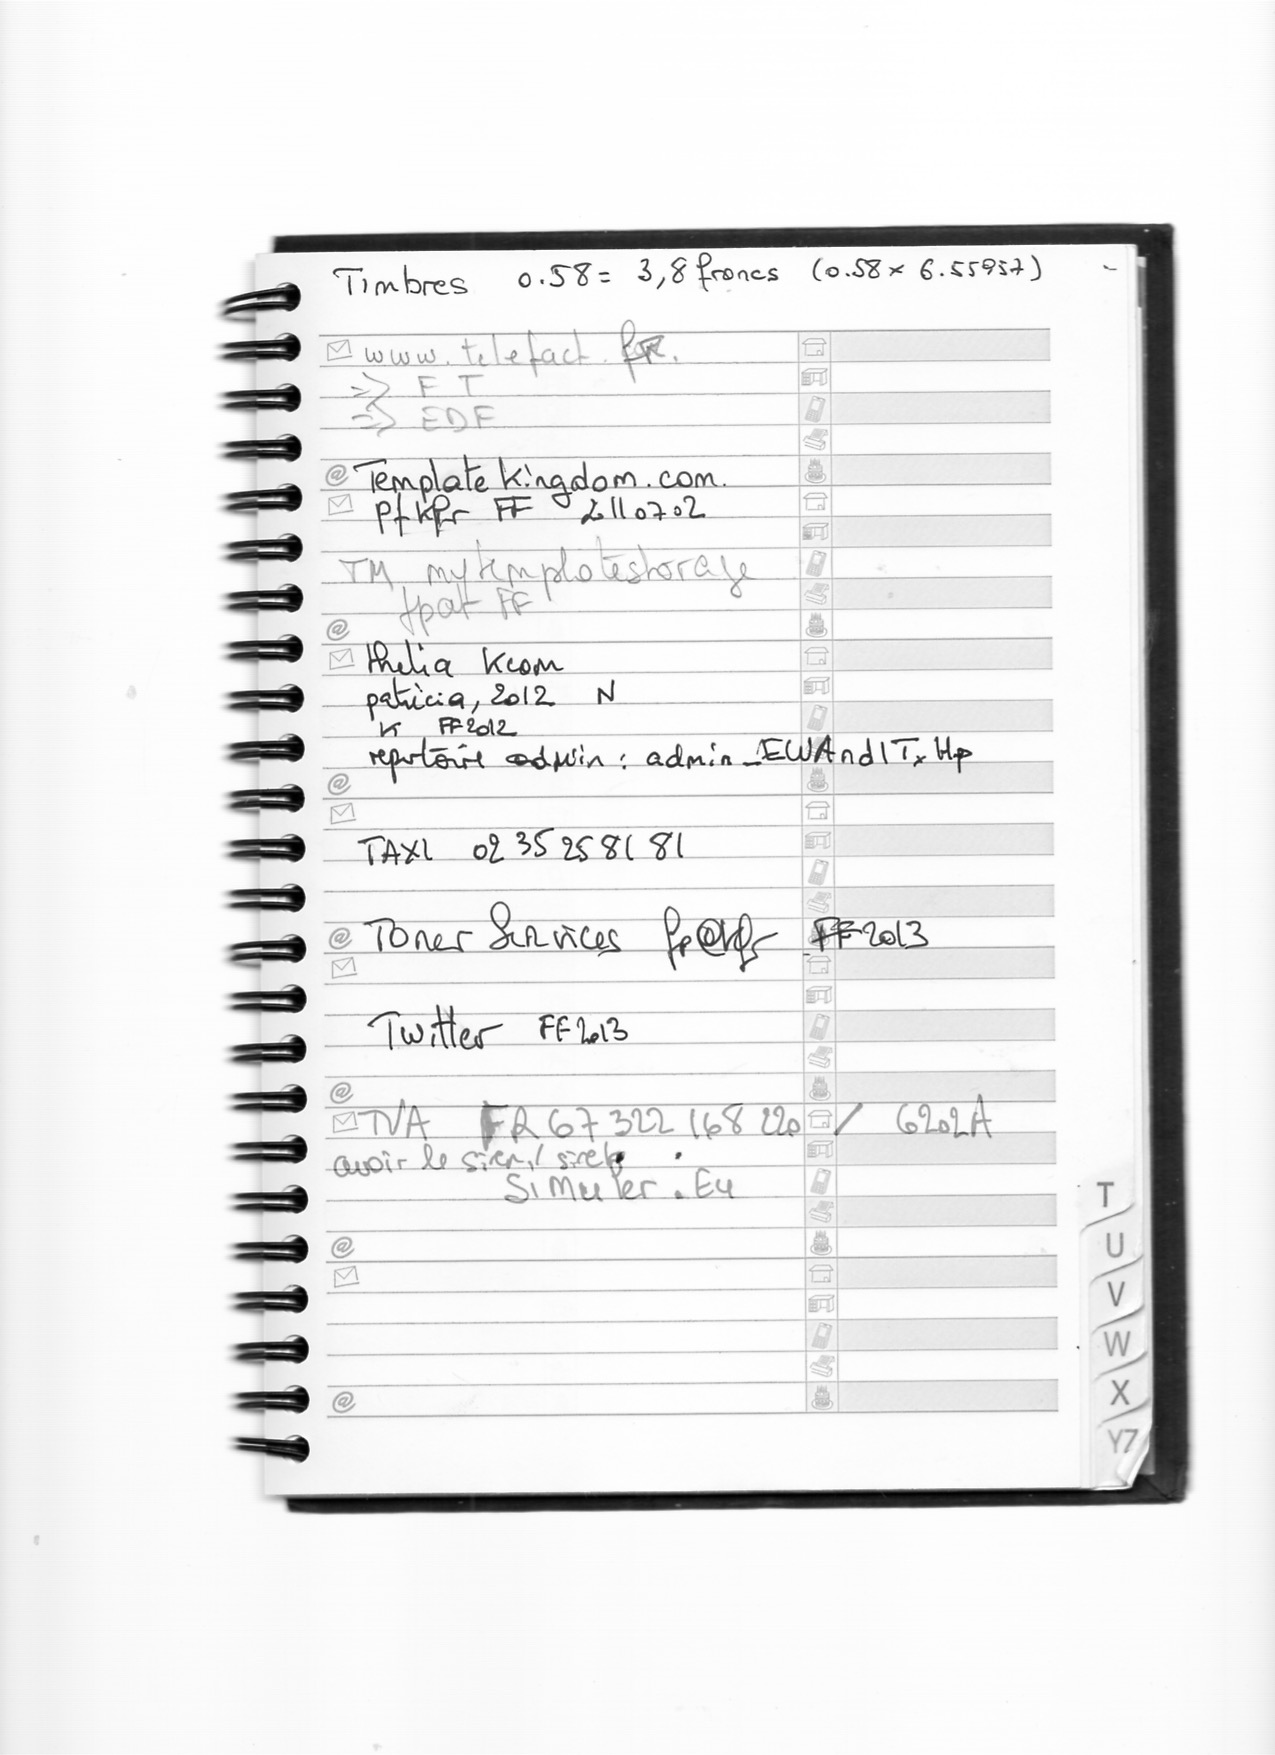 Timbres 0.58 = 3,8 francs (0.58 x 6.55957)
www.telefact.fr.
=> FT
=> EDF
Template Kingdom.com.
pfkfr FF 2110702
TM mytemplatestorage
fpat FF
thelia Kcom
patricia, 2012 N
K FF2012
repertoire admin : admin_EWAndITxHp
TAXI 02 35 25 81 81
Toner Services fr@kfr FF2013
Twitter FF2013
TVA FR 67 322 168 220 / 6202A
avoir le siren/siret
SiMuler.Eu
T
U
V
W
X
YZ